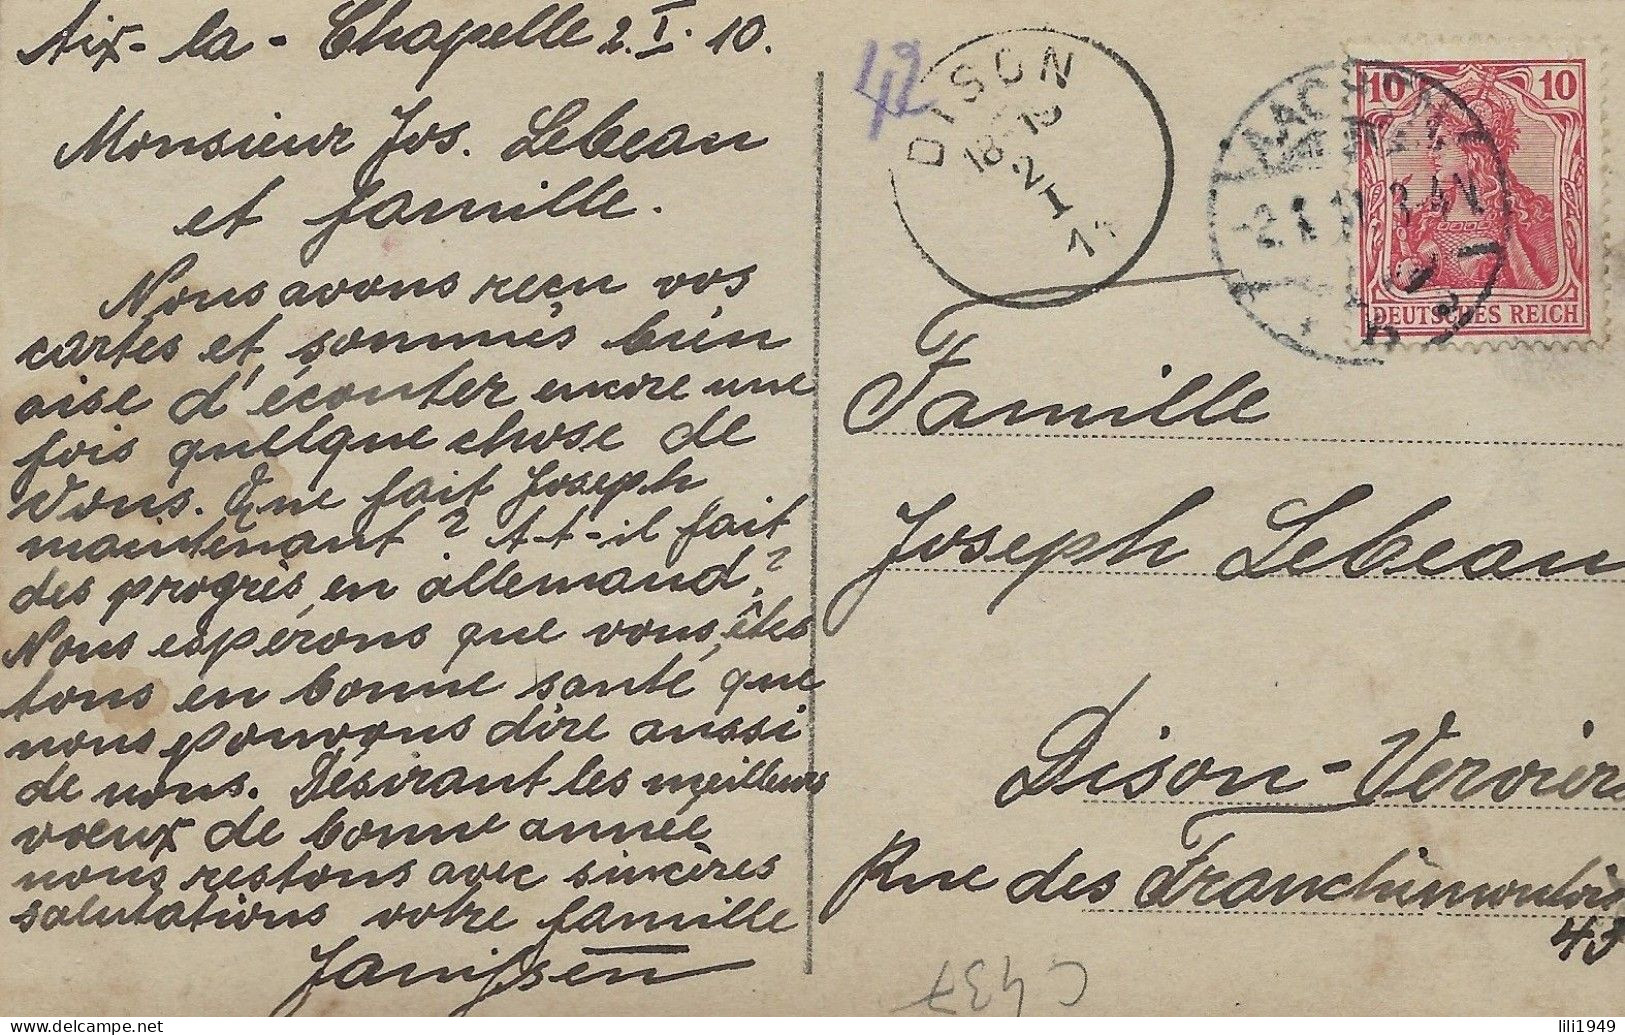 Aix-la-Chapelle 2.I.10.
Monsieur Jos. Lebeau
et famille.
Nous avons reçu vos
cartes et sommes bien
aise d'écouter encore une
fois quelque chose de
Vous. Que fait Joseph
maintenant? A-t-il fait
des progrès en allemand?
Nous espérons que vous êtes
tous en bonne santé, que
nous pouvons dire aussi
de nous. Désirant les meilleurs
vœux de bonne année
nous restons avec sincères
salutations votre famille
Janssen
42
DISON
18-19
2
I
11
AACHEN
2.1.11. 3-4 N
10 10
DEUTSCHES REICH
Famille
Joseph Lebeau
Dison-Verviers
Rue des Franchimontois
C 437
delcampe.net
lili1949